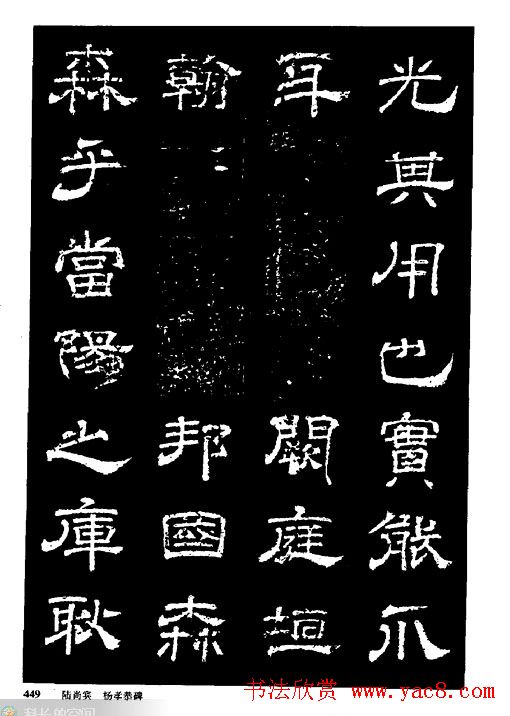 光其用也實能爪
牙闕庭垣
翰邦國森
森乎當陽之庫耿
449 陆尚宾 杨孝恭碑
书法欣赏 www.yac8.com
科长的空间